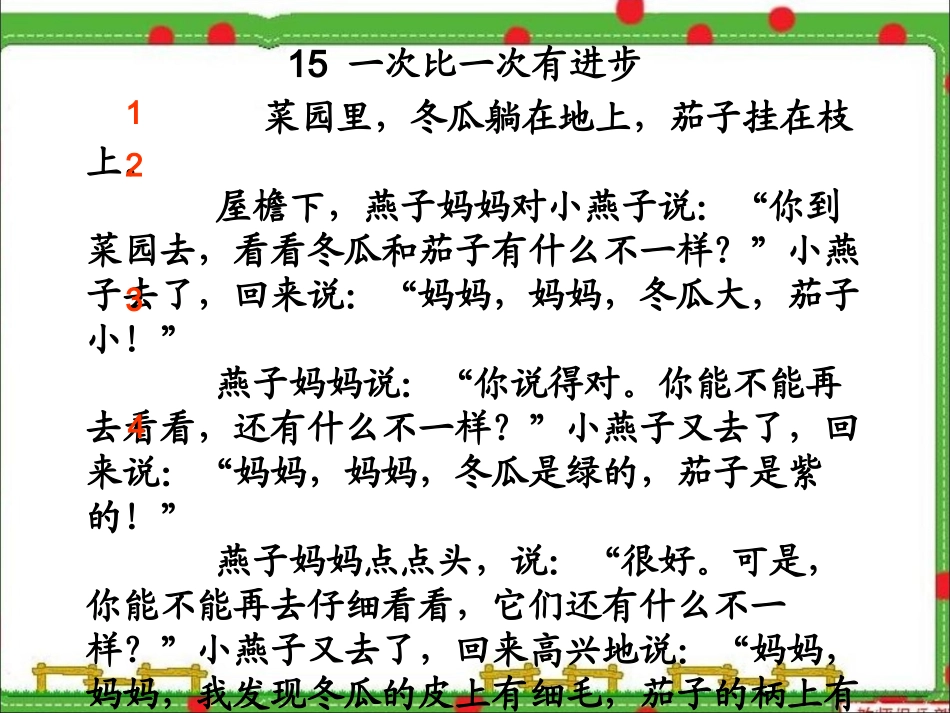 15 一次比一次有进步
1 菜园里，冬瓜躺在地上，茄子挂在枝
上。
2
屋檐下，燕子妈妈对小燕子说：“你到
菜园去，看看冬瓜和茄子有什么不一样？”小燕
子去了，回来说：“妈妈，妈妈，冬瓜大，茄子
3
小！”
燕子妈妈说：“你说得对。你能不能再
去看看，还有什么不一样？”小燕子又去了，回
4
来说：“妈妈，妈妈，冬瓜是绿的，茄子是紫
的！”
燕子妈妈点点头，说：“很好。可是，
你能不能再去仔细看看，它们还有什么不一
样？”小燕子又去了，回来高兴地说：“妈妈，
妈妈，我发现冬瓜的皮上有细毛，茄子的柄上有